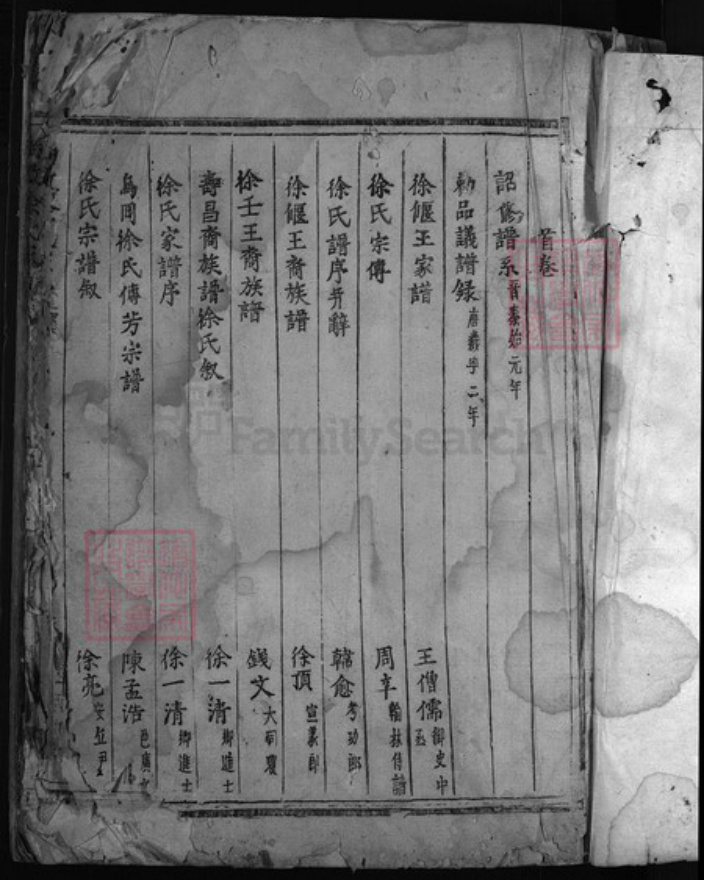 首卷
詔修譜系 晉泰始元年
勅品議譜錄 唐壽 二年
徐偃王家譜 王僧儒 御史中丞
徐氏宗傳 周辛 翰林侍讀
徐氏譜序并辭 韓愈 考功郎
徐偃王裔族譜 徐頂 宣義郎
徐王王裔族譜 錢文 大司
壽昌裔族譜徐氏叙 徐一清 鄉進士
徐氏家譜序 徐一清 鄉進士
烏岡徐氏傳芳宗譜 陳孟浩 邑
徐氏宗譜叙 徐亮 安丘
FamilySearch